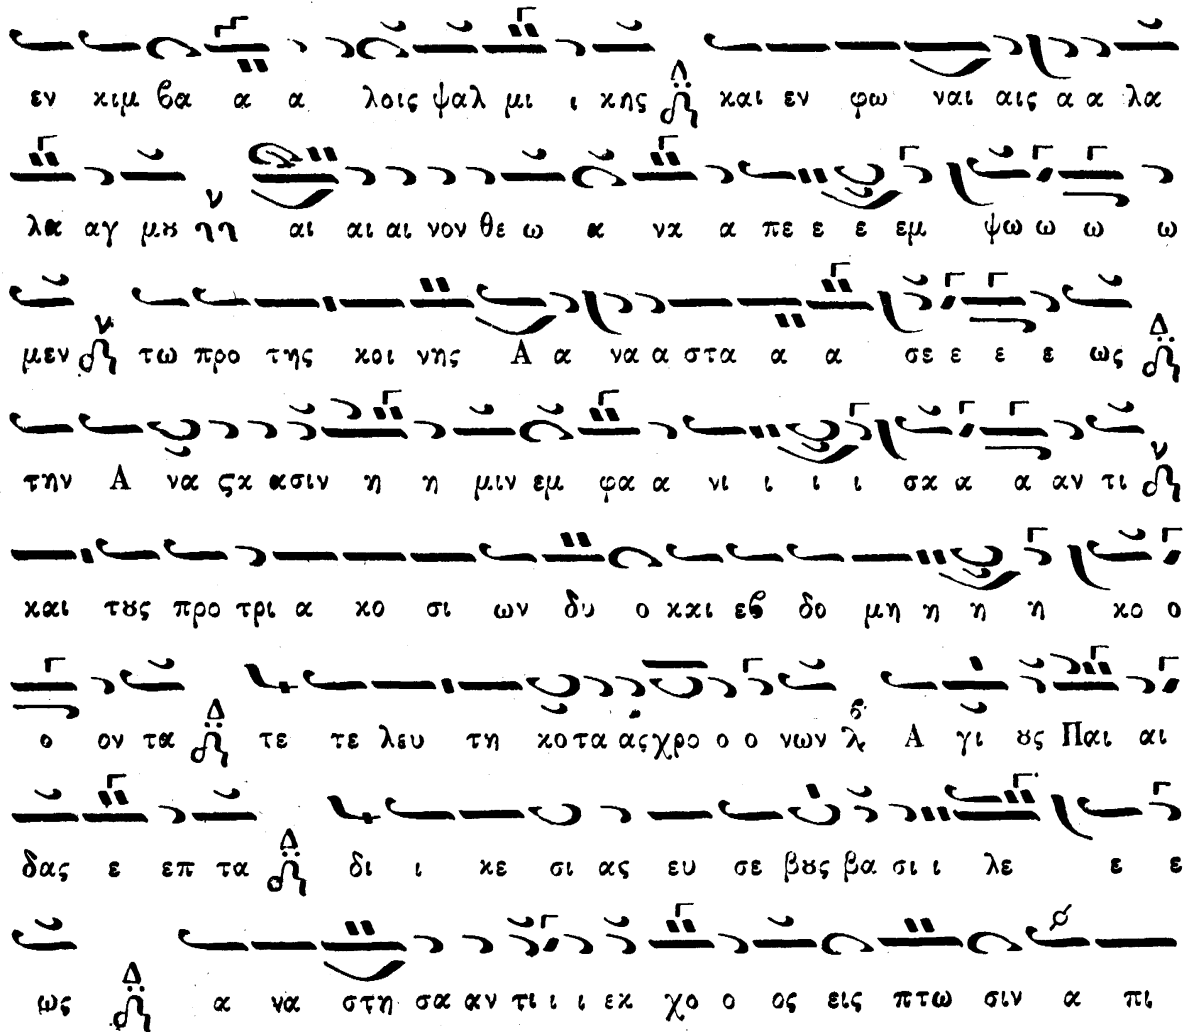 εν κιμ βα α α λοις ψαλ μι ι κης Δ και εν φω ναι αις α α λα
λα αγ μȣ ν ηη αι αι αι νον θε ω α να α πε ε ε εμ ψω ω ω ω
μεν ν τω προ της κοι νης Α α να α στα α α σε ε ε ε ως Δ
την Α να ςκ ασιν η η μιν εμ φα α νι ι ι ι σκ α α αν τι ν
και τȣς προ τρι α κο σι ων δυ ο και εβ δο μη η η η κο ο
ο ον τα Δ τε τε λευ τη κο τα ας χρο ο ο νων λ Α γι ȣς Παι αι
δας ε επ τα Δ δι ι κε σι ας ευ σε βȣς βα σι ι λε ε ε
ως Δ α να στη σα αν τι ι ι εκ χο ο ος εις πτω σιν α πι